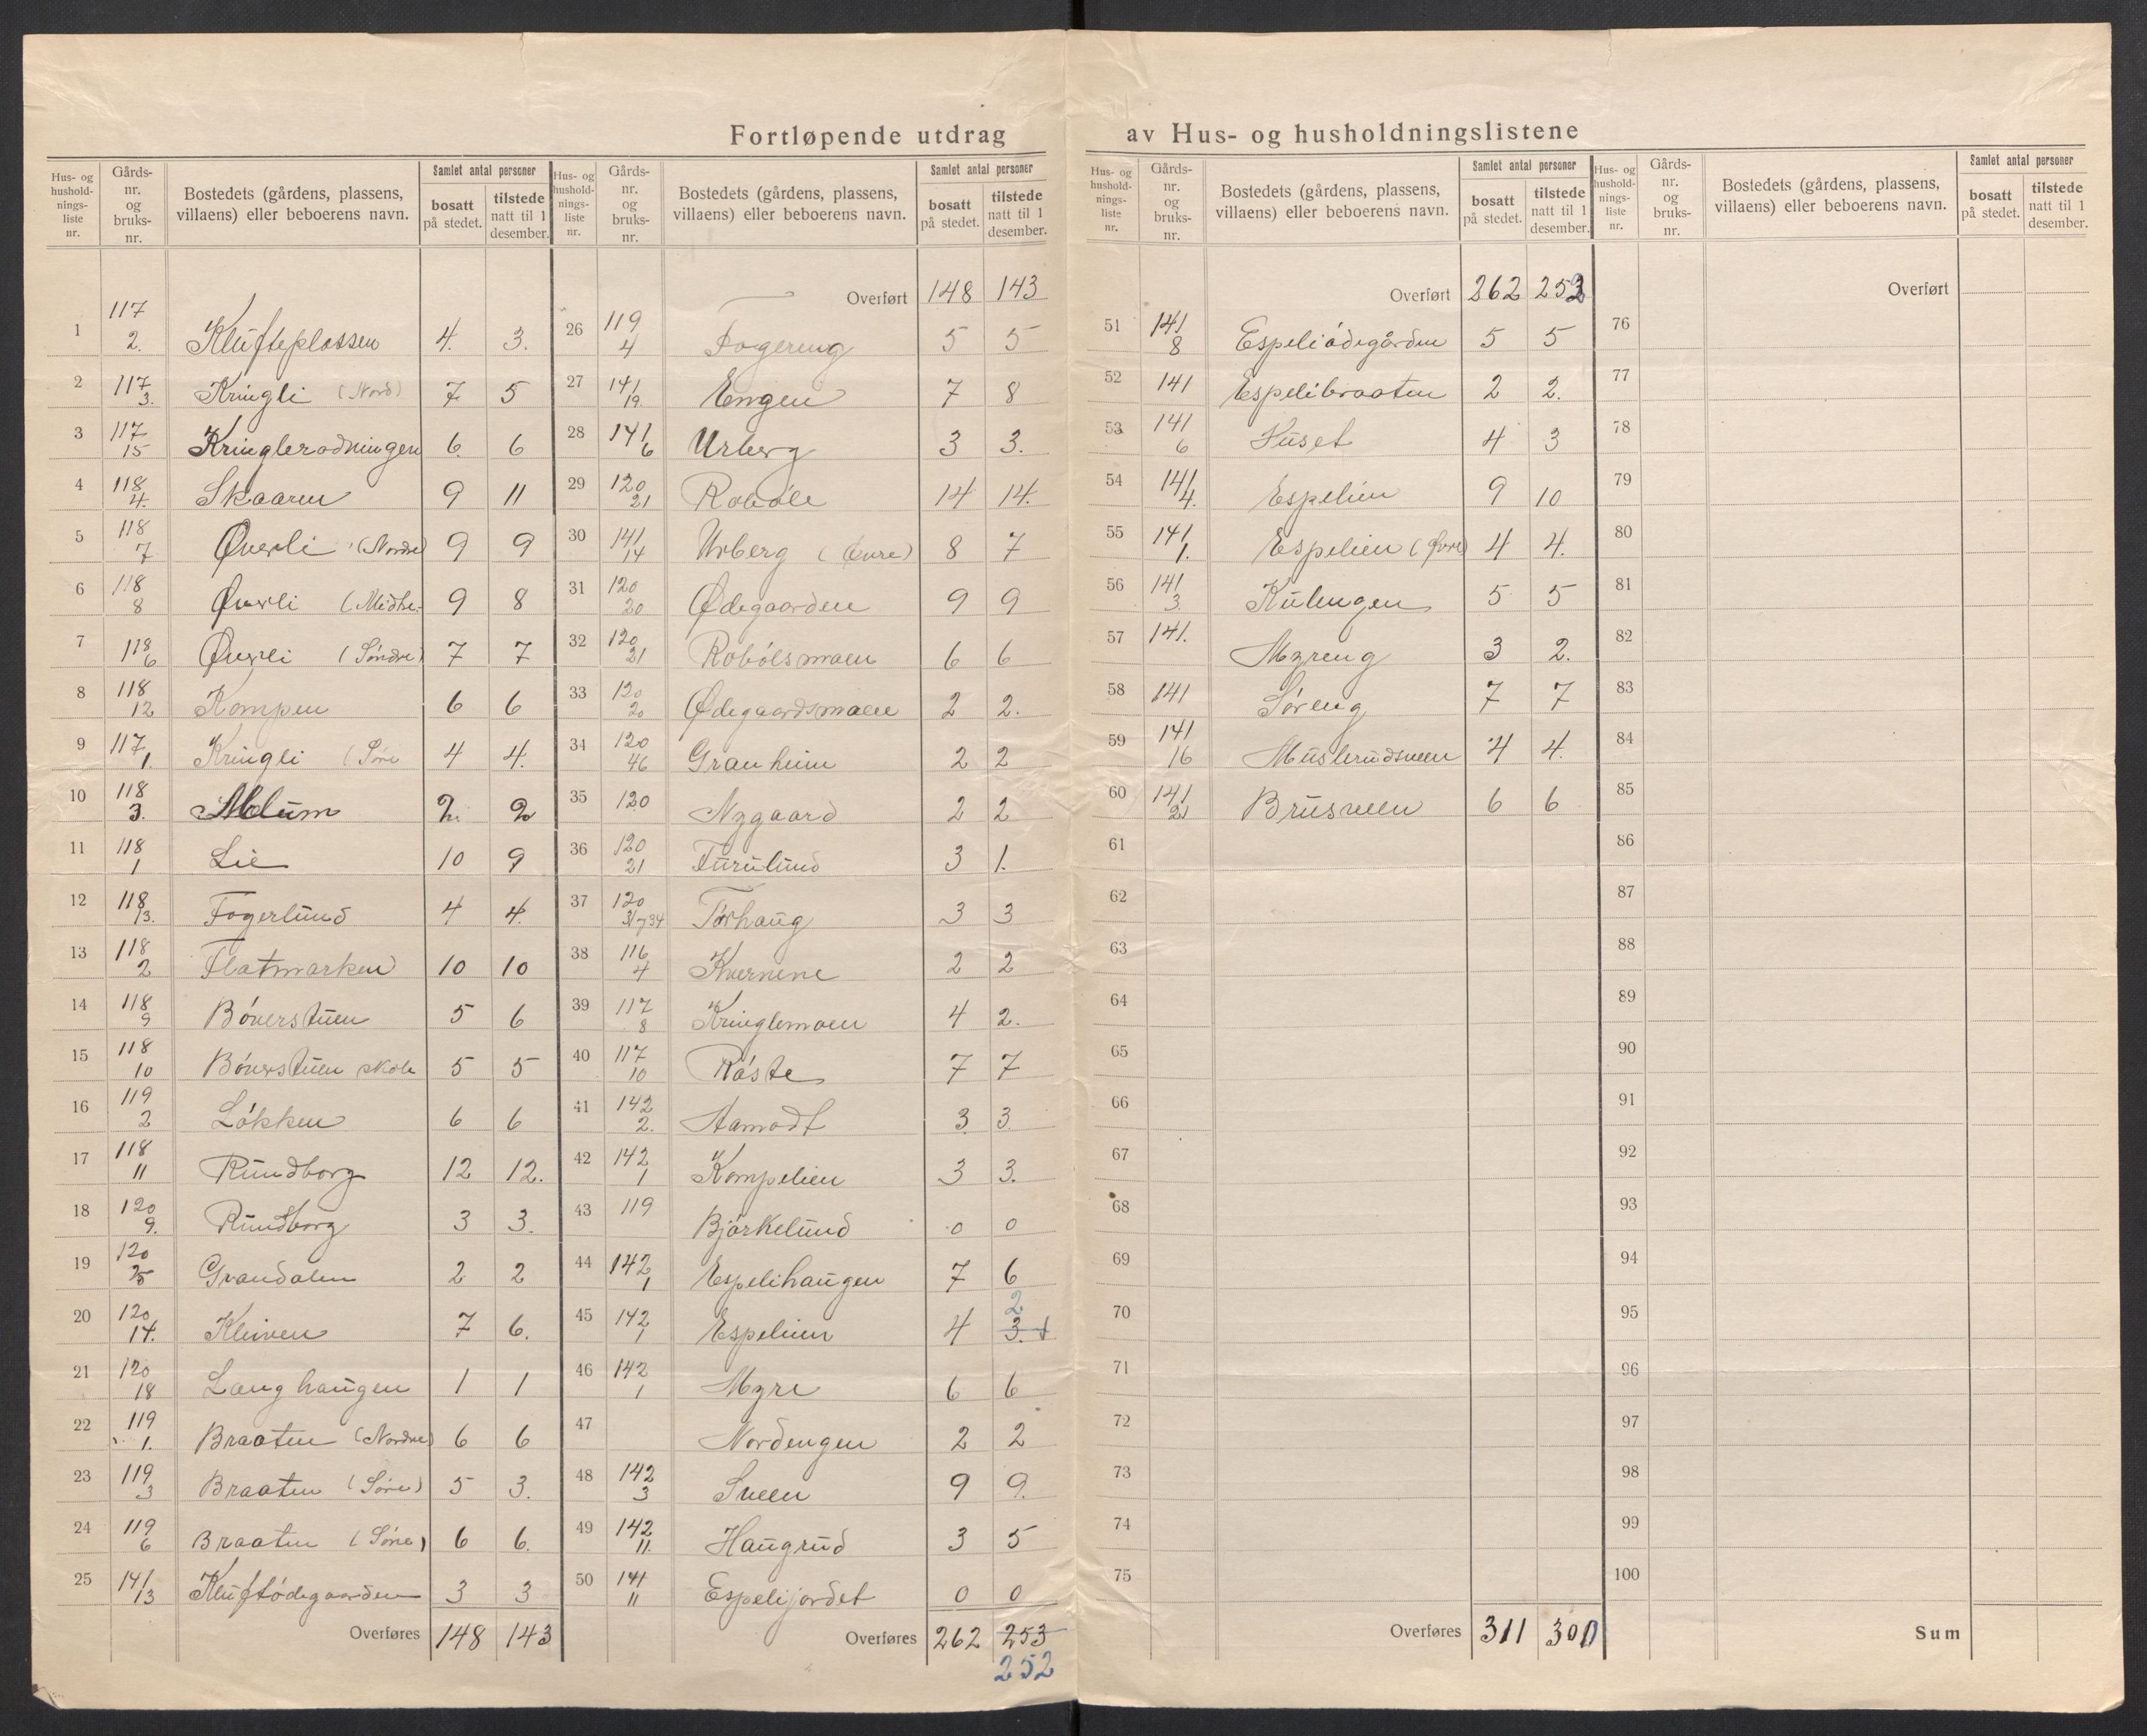 Fortløpende utdrag av Hus- og husholdningslistene
Hus- og husholdningsliste nr. | Gårds-nr. og bruks-nr. | Bostedets (gårdens, plassens, villaens) eller beboerens navn. | Samlet antal personer bosatt på stedet. | tilstede natt til 1 desember.
1 117/2. Klufteplassen 4. 3.
2 117/3. Kringli (Nord) 7 5
3 117/15 Kringlerodningen 6. 6
4 118/4. Skaaren 9 11
5 118/7 Øverli (Nordre) 9 9
6 118/8 Øverli (Midtre 9 8
7 118/6 Øverli (Søndre) 7 7
8 118/12 Kompen 6 6
9 117/1. Kringli (Søre 4 4.
10 118/3. Melum 2. 2
11 118/1 Lie 10 9
12 118/13. Fagerlund 4 4.
13 118/2 Flatmarken 10 10
14 118/9 Bøverstuen 5 6
15 118/10 Bøverstuen skole 5 5
16 119/2 Løkken 6 6
17 118/11 Rundborg 12 12.
18 120/9. Rundborg 3 3.
19 120/25 Grandalen 2 2
20 120/14. Kleiven 7 6.
21 120/18 Langhaugen 1 1
22 119/1. Braaten (Nordre) 6 6
23 119/3 Braaten (Søre) 5 3.
24 119/6 Braaten (Søre) 6 6.
25 141/13 Kluftødegaarden 3 3
Overføres 148 143
Hus- og husholdningsliste nr. | Gårds-nr. og bruks-nr. | Bostedets (gårdens, plassens, villaens) eller beboerens navn. | Samlet antal personer bosatt på stedet. | tilstede natt til 1 desember.
Overført 148 143
26 119/4 Fagereng 5 5
27 141/19. Engen 7 8
28 141/6 Urberg 3 3.
29 120/21 Robøle 14 14.
30 141/14 Urberg (Øvre) 8 7
31 120/20 Ødegaarden 9 9
32 120/21 Robølsmoen 6 6
33 120/20 Ødegaardsmoen 2 2.
34 120/46 Granheim 2 2
35 120 Nygaard 2 2
36 120/21 Furulund 3 1.
37 120/31 og 34 Torhaug 3 3
38 116/4 Kvernene 2 2
39 117/8 Kringlemoen 4 2.
40 117/10 Røste 7 7
41 142/2. Aamodt 3 3.
42 142/1 Kompelien 3 3.
43 119 Bjørkelund 0 0
44 142/1 Espelihaugen 7 6
45 142/1 Espelien 4 3. 2
46 142/1 Myre 6 6
47 Nordengen 2 2
48 142/3 Sveen 9 9.
49 142/11. Haugrud 3 5
50 141/11 Espelijordet 0 0
Overføres 262 253
252
Hus- og husholdningsliste nr. | Gårds-nr. og bruks-nr. | Bostedets (gårdens, plassens, villaens) eller beboerens navn. | Samlet antal personer bosatt på stedet. | tilstede natt til 1 desember.
Overført 262 252
51 141/8 Espeliødegården 5 5
52 141 Espelibraaten 2 2.
53 141/6 Huset 4 3
54 141/4. Espelien 9 10
55 141/1. Espelien (Øvre) 4 4.
56 141/3. Kulengen 5 5
57 141. Myreng 3 2.
58 141 Søreng 7 7
59 141/16 Muslerudsveen 4 4.
60 141/21 Brusveen 6 6
61
62
63
64
65
66
67
68
69
70
71
72
73
74
75
Overføres 311 300
Hus- og husholdningsliste nr. | Gårds-nr. og bruks-nr. | Bostedets (gårdens, plassens, villaens) eller beboerens navn. | Samlet antal personer bosatt på stedet. | tilstede natt til 1 desember.
Overført
76
77
78
79
80
81
82
83
84
85
86
87
88
89
90
91
92
93
94
95
96
97
98
99
100
Sum